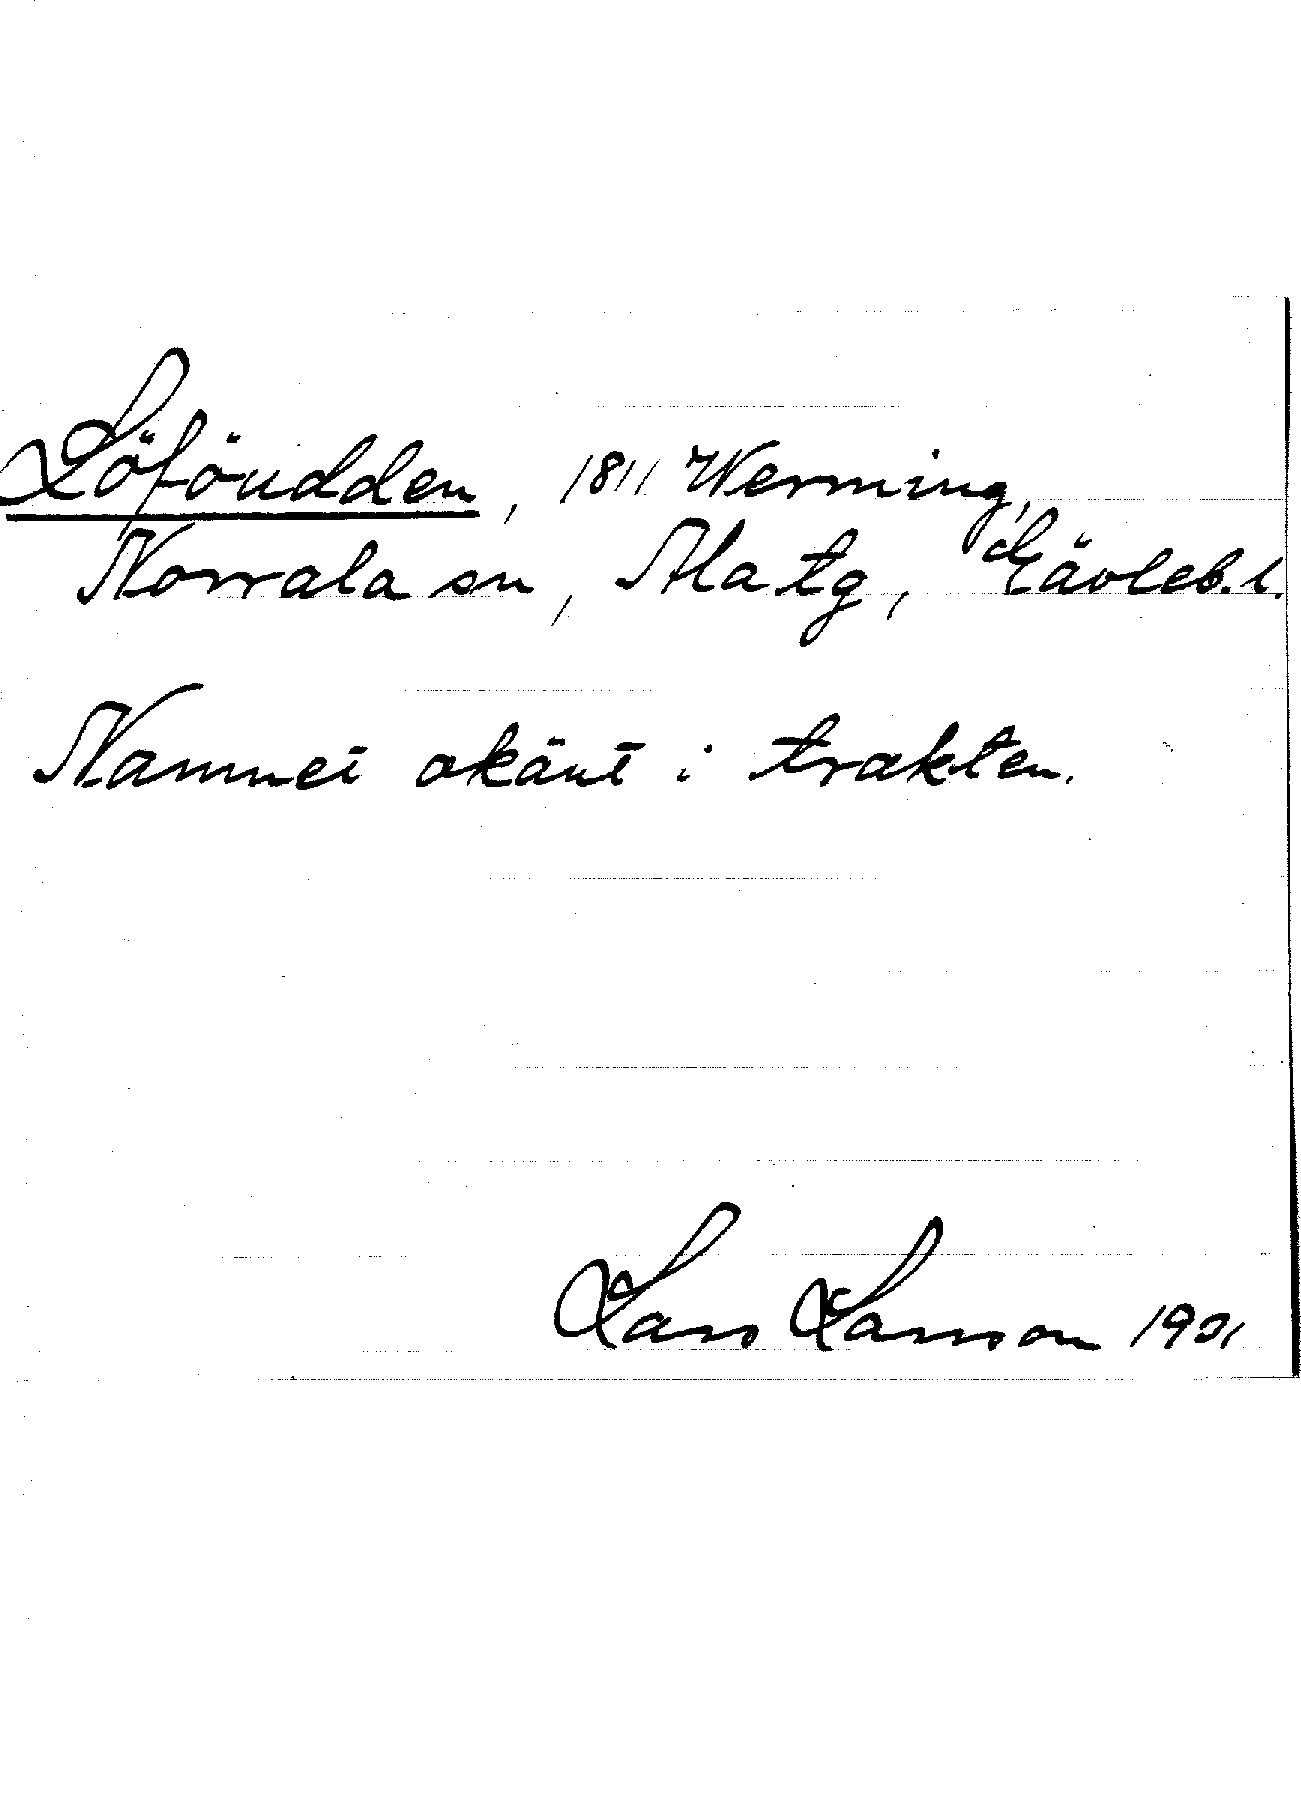 Löföudden, 1811 Werming,
Norrala sn, Ala tg, Gävleb. l.
Namnet okänt i trakten.
Lars Larsson 1931